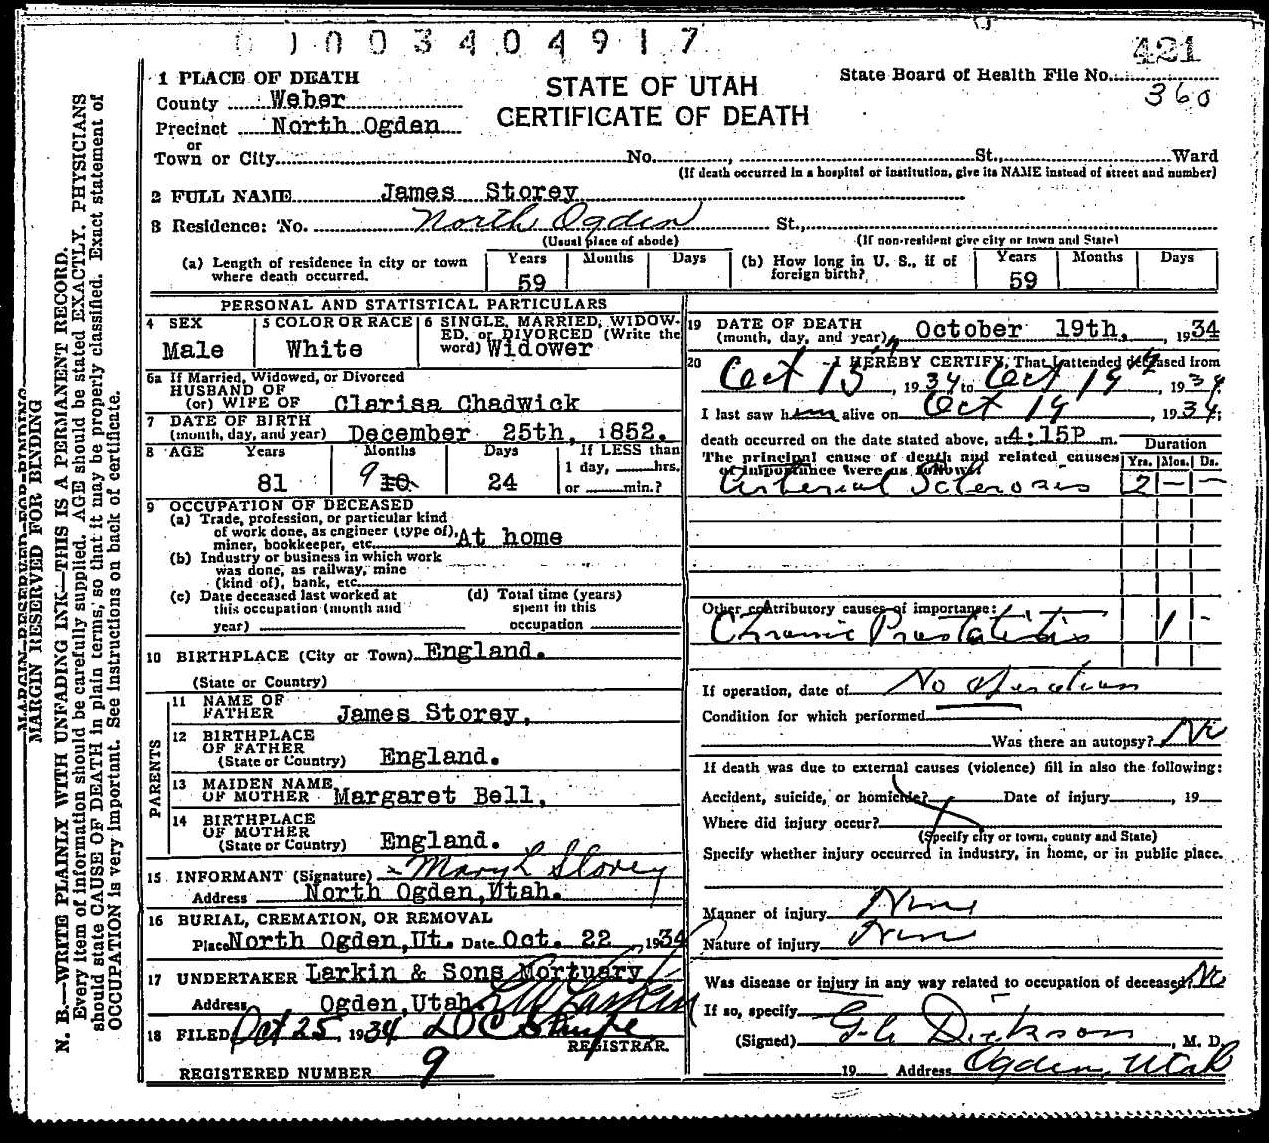 1003404917
421
STATE OF UTAH
CERTIFICATE OF DEATH
State Board of Health File No.
360
1 PLACE OF DEATH
County Weber
Precinct North Ogden
or
Town or City No. , St., Ward
(If death occurred in a hospital or institution, give its NAME instead of street and number)
2 FULL NAME James Storey
3 Residence: No. North Ogden St.,
(Usual place of abode) (If non-resident give city or town and State)
(a) Length of residence in city or town where death occurred. Years 59 Months Days
(b) How long in U. S., if of foreign birth? Years 59 Months Days
PERSONAL AND STATISTICAL PARTICULARS
4 SEX Male
5 COLOR OR RACE White
6 SINGLE, MARRIED, WIDOWED, or DIVORCED (Write the word) Widower
6a If Married, Widowed, or Divorced
HUSBAND OF
(or) WIFE OF Clarisa Chadwick
7 DATE OF BIRTH
(month, day, and year) December 25th, 1852.
8 AGE Years 81 Months 9 10 Days 24
If LESS than
1 day, hrs.
or min.?
9 OCCUPATION OF DECEASED
(a) Trade, profession, or particular kind
of work done, as engineer (type of),
miner, bookkeeper, etc. At home
(b) Industry or business in which work
was done, as railway, mine
(kind of), bank, etc.
(c) Date deceased last worked at
this occupation (month and
year)
(d) Total time (years)
spent in this
occupation
10 BIRTHPLACE (City or Town) England.
(State or Country)
PARENTS
11 NAME OF
FATHER James Storey,
12 BIRTHPLACE
OF FATHER
(State or Country) England.
13 MAIDEN NAME
OF MOTHER Margaret Bell,
14 BIRTHPLACE
OF MOTHER
(State or Country) England.
15 INFORMANT (Signature) Mary L Storey
Address North Ogden, Utah.
16 BURIAL, CREMATION, OR REMOVAL
Place North Ogden, Ut. Date Oct. 22, 1934
17 UNDERTAKER Larkin & Sons Mortuary
Address Ogden, Utah. Larkin
18 FILED Oct 25, 1934
REGISTRAR.
REGISTERED NUMBER 9
19 DATE OF DEATH
(month, day, and year) October 19th, 1934
20 I HEREBY CERTIFY, That I attended deceased from
Oct 15th, 1934 to Oct 19th 1934
I last saw him alive on Oct 19, 1934;
death occurred on the date stated above, at 4:15P m.
The principal cause of death and related causes
of importance were as follows:
Duration
Yrs. Mos. Ds.
Arterial Sclerosis 2 - -
Other contributory causes of importance:
Chronic Prostatitis 1 -
If operation, date of No operation
Condition for which performed
Was there an autopsy? No
If death was due to external causes (violence) fill in also the following:
Accident, suicide, or homicide? Date of injury , 19
Where did injury occur?
(Specify city or town, county and State)
Specify whether injury occurred in industry, in home, or in public place.
Manner of injury None
Nature of injury None
Was disease or injury in any way related to occupation of deceased? No
If so, specify
(Signed) Dickson, M. D.
19 Address Ogden, Utah
MARGIN RESERVED FOR BINDING
MARGIN RESERVED FOR BINDING
N. B.—WRITE PLAINLY WITH UNFADING INK—THIS IS A PERMANENT RECORD.
Every item of information should be carefully supplied. AGE should be stated EXACTLY. PHYSICIANS
should state CAUSE OF DEATH in plain terms, so that it may be properly classified. Exact statement of
OCCUPATION is very important. See instructions on back of certificate.